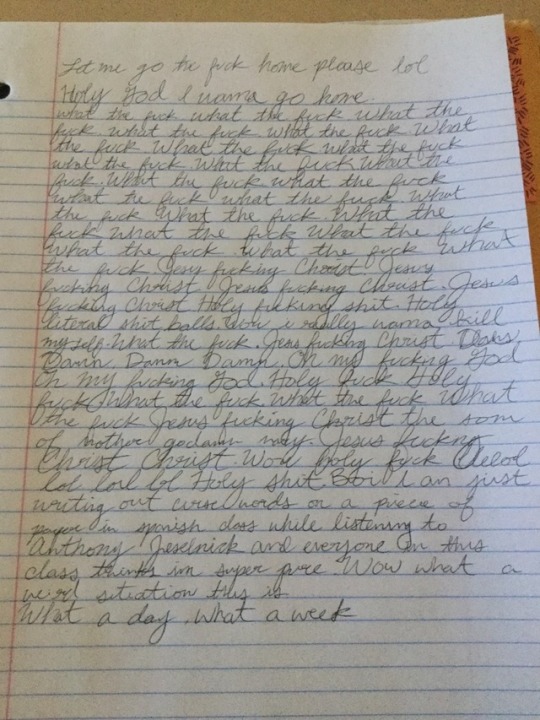 Let me go the fuck home please lol
Holy God I wanna go home
what the fuck what the fuck What the
fuck what the fuck. What the fuck. What
the fuck What the fuck what the fuck
what the fuck. What the fuck What the
fuck. What the fuck what the fuck
What the fuck what the fuck. What
the fuck What the fuck. What the
fuck what the fuck What the fuck
What the fuck what the fuck What
the fuck Jesus fucking Christ. Jesus
fucking Christ Jesus fucking Christ. Jesus
fucking Christ Holy fucking shit. Holy
literal shit balls i really wanna kill
my self. What the fuck. Jesus fucking Christ
Damn. Damn Damn. Oh my fucking God
Oh my fucking God. Holy fuck Holy
fuck. What the fuck What the fuck What
the fuck Jesus fucking Christ the son
of mother goddamn mary. Jesus fucking
Christ Christ Wow Holy fuck
lol lol lol Holy shit. Boi i am just
writing out curse words on a piece of
paper in spanish class while listening to
Anthony Jeselnick and everyone in this
class thinks im super pure. Wow what a
weird situation this is
What a day. What a week